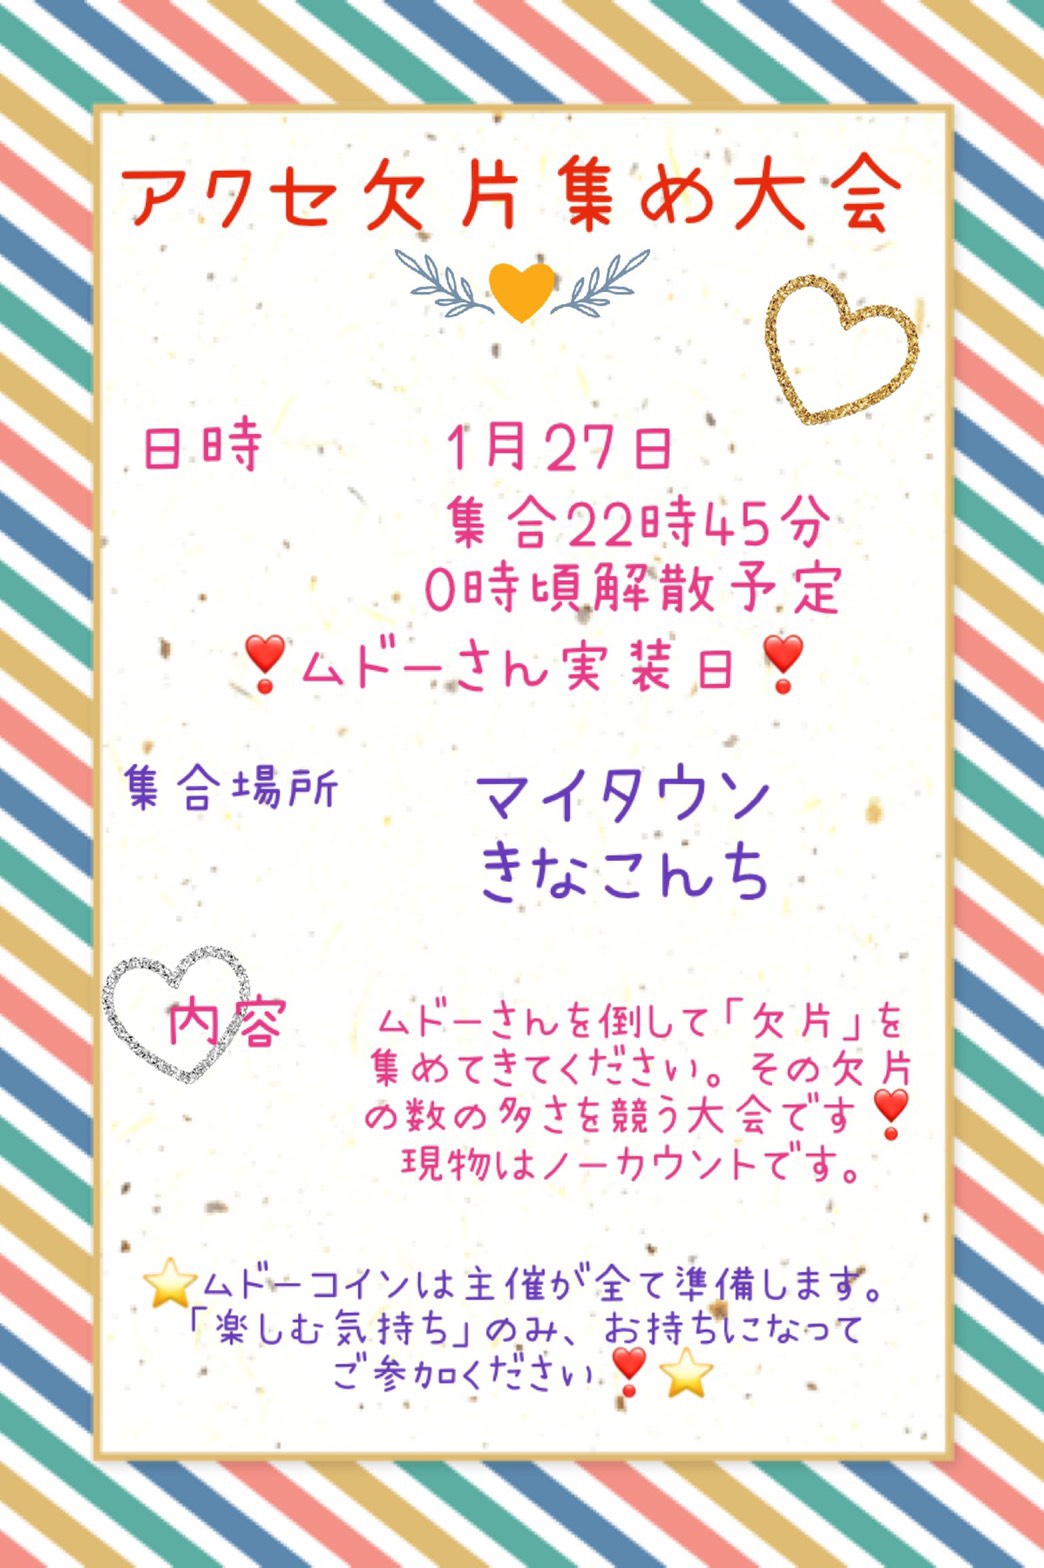 アクセ欠片集め大会
日時 1月27日
集合22時45分
0時頃解散予定
❣️ムドーさん実装日❣️
集合場所 マイタウン
きなこんち
内容 ムドーさんを倒して「欠片」を
集めてきてください。その欠片
の数の多さを競う大会です❣️
現物はノーカウントです。
⭐ムドーコインは主催が全て準備します。
「楽しむ気持ち」のみ、お持ちになって
ご参加ください❣️⭐